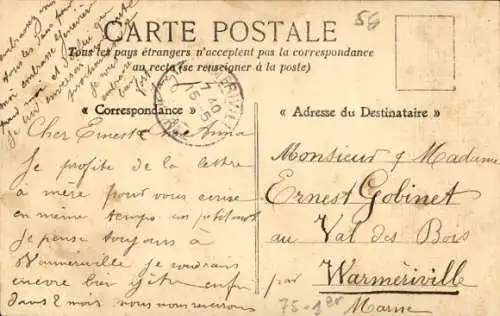 CARTE POSTALE
Tous les pays étrangers n'acceptent pas la correspondance
au recto (se renseigner à la poste)
56
« Correspondance »
« Adresse du Destinataire »
Cher Ernest Chère Anna
Je profite de la lettre
à mère pour vous
en même temps un petit mot
Je pense toujours à
Warmeriville je voudrais
encore bien y être enfin
dans 2 mois nous nous reverrons
7 40
15-5
Monsieur & Madame
Ernest Gobinet
au Val des Bois
par Warmériville
Marne
75-1er